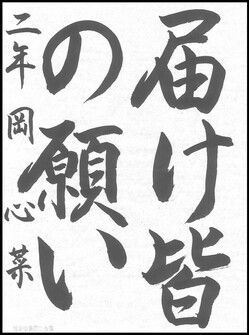 届け皆
の願い
二年 岡 心菜